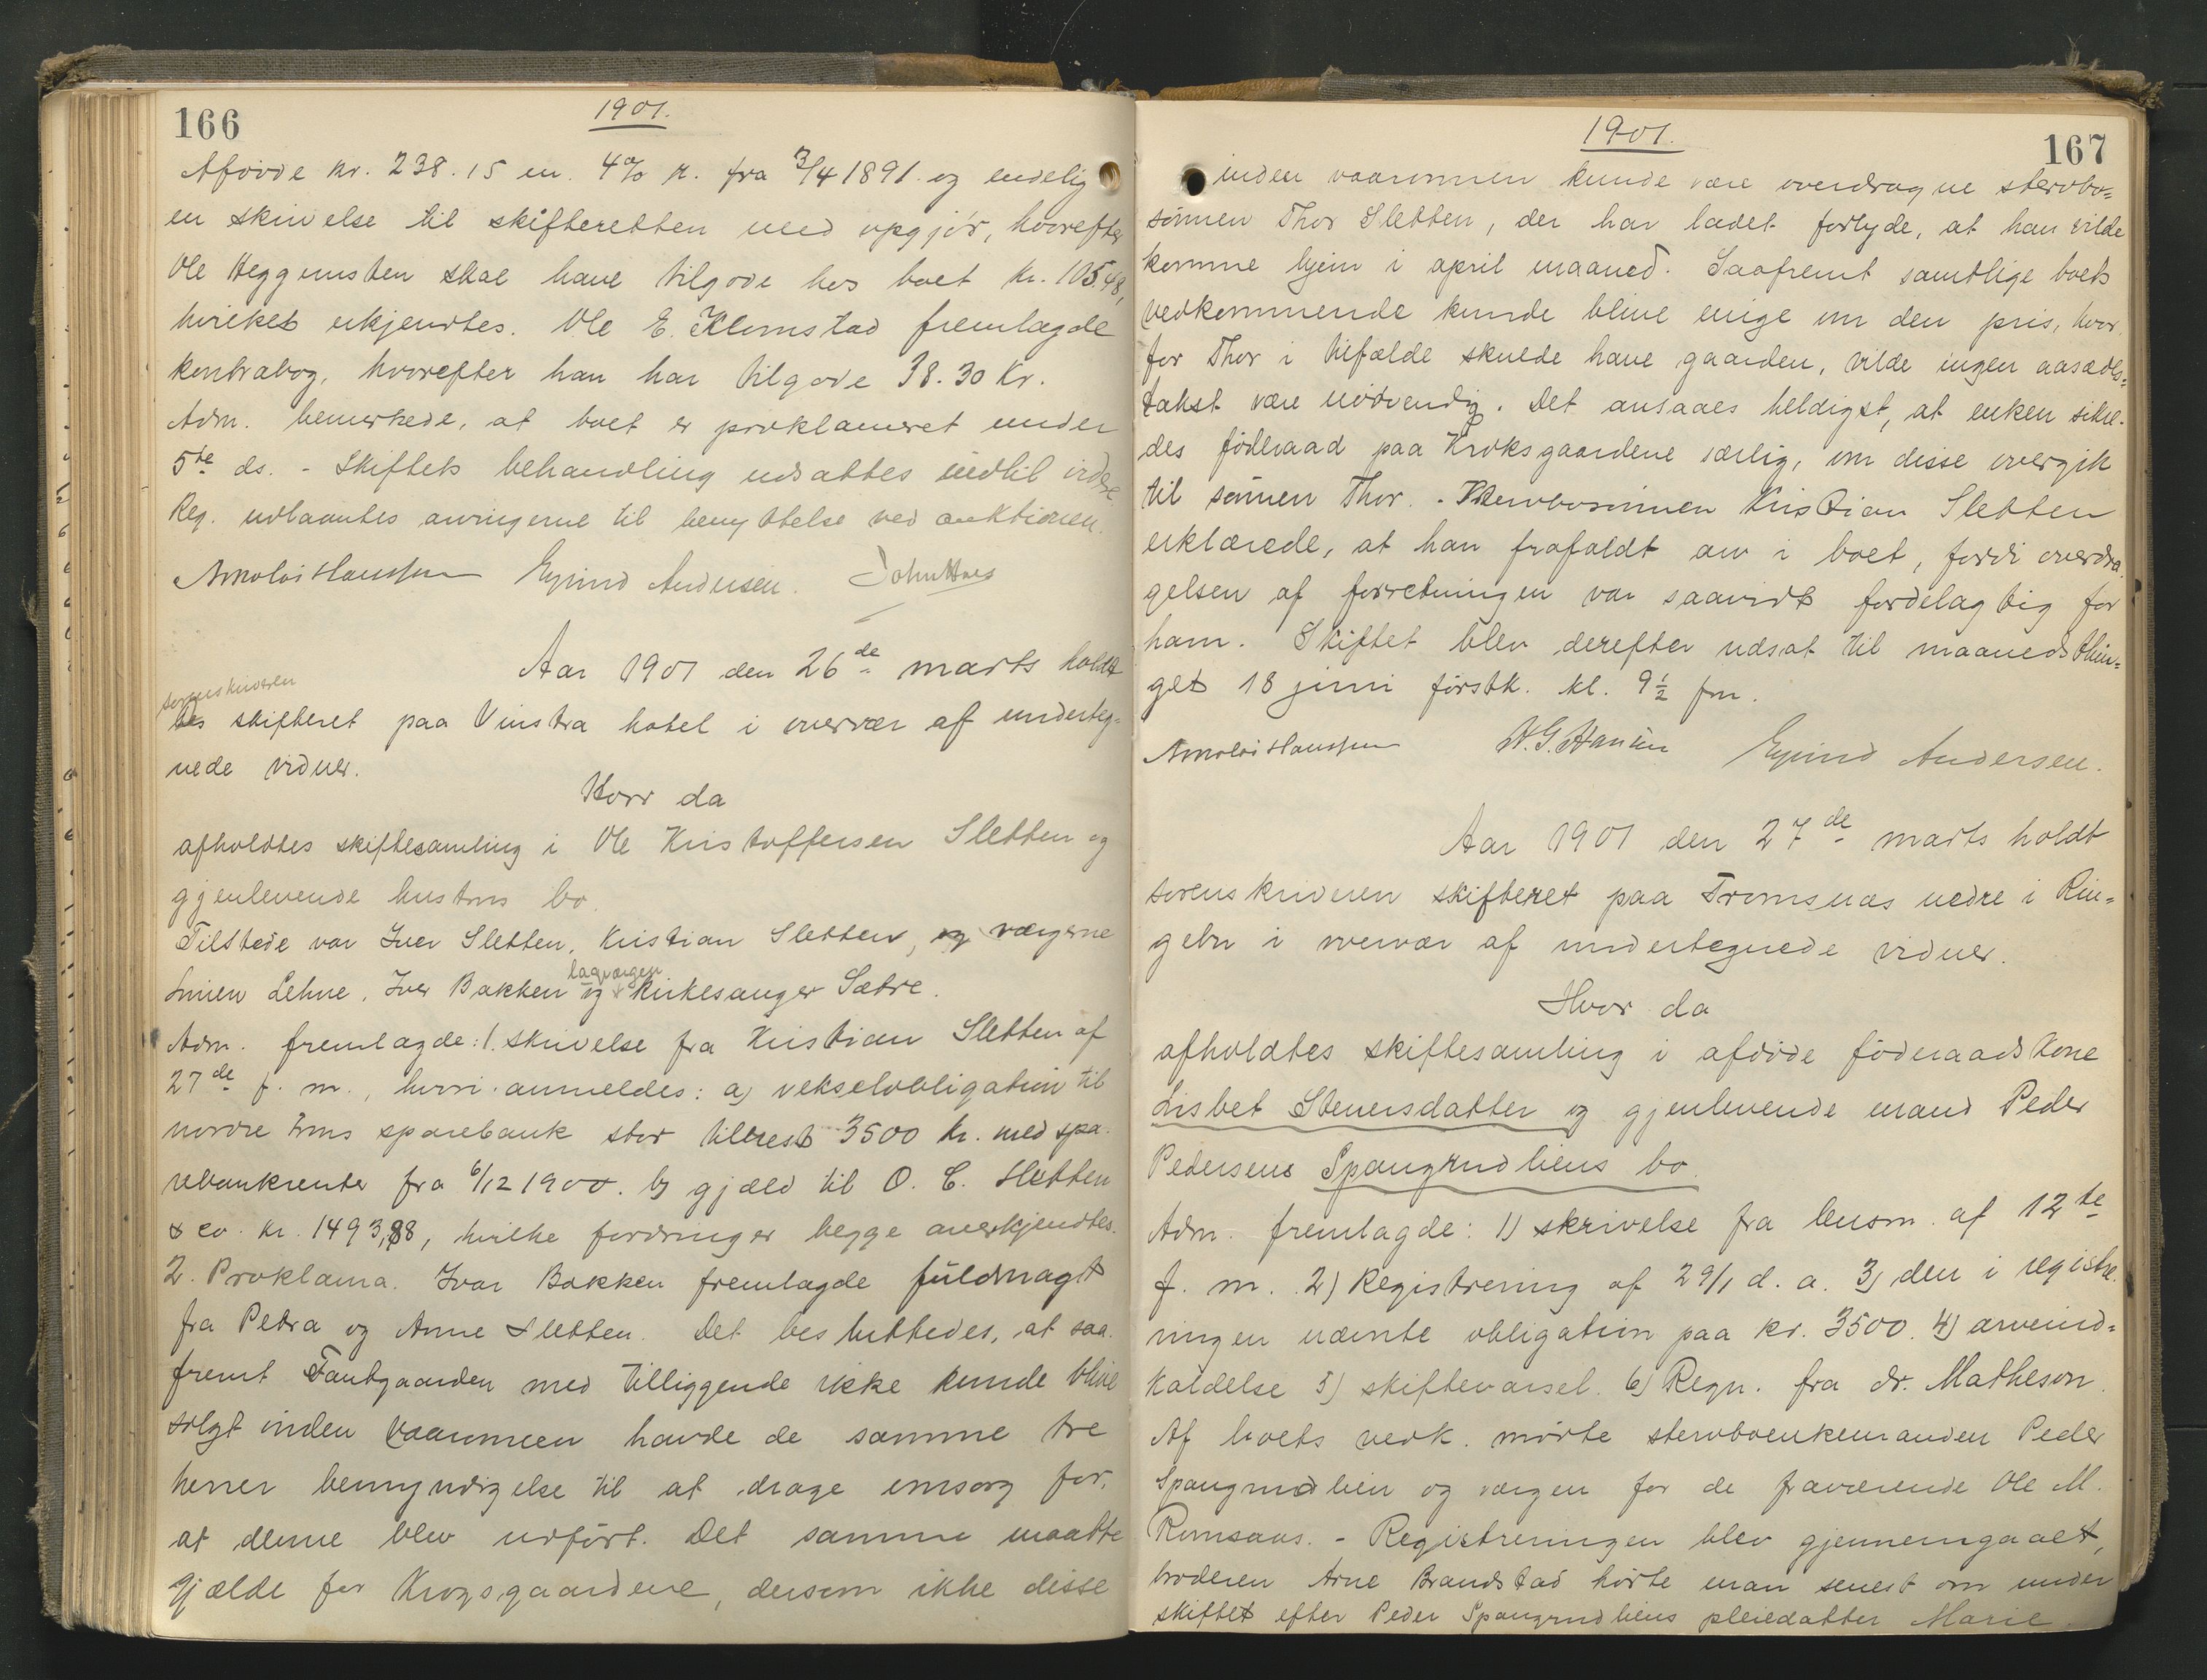 166
1901.
Afdøde kr. 238.15 m. 4% r. fra 3/4 1891 og endelig
en skrivelse til skifteretten med opgjør, hvorefter
Ole Heggensten skal have tilgode hos boet kr. 105.48,
hvilket erkjendtes. Ole E. Klomstad fremlagde
kontrabog, hvorefter han har tilgode 38.30 Kr.
Adm. bemerkede, at boet er proklameret under
5te ds. - Skiftets behandling udsattes indtil videre
Reg. udlaantes arvingerne til benyttelse ved auktionen.
Arnoldi Hanssen Eyvind Andersen. John Haas
Aar 1901 den 26de marts holdt
sorenskriveren
tes skifteret paa Vinstra hotel i overvær af underteg-
nede vidner.
Hvor da
afholdtes skiftesamling i Ole Kristoffersen Sletten og
gjenlevende hustrus bo.
Tilstede var Iver Sletten, Kristian Sletten, og værgerne
lagværgen
Simen Lehne, Iver Bakken og kirkesanger Sætre.
Adm. fremlagde: 1. skrivelse fra Kristian Sletten af
27de f. m., hvori anmeldes: a) vekselobligation til
nordre Frons sparebank stor tilrest 3500 kr. med spa-
rebankrenter fra 6/12 1900. b) gjæld til O. C. Sletten
& co. kr. 1493,88, hvilke fordringer begge anerkjendtes.
2. Proklama. Ivar Bakken fremlagde fuldmagt
fra Petra og Anne Sletten. Det besluttedes, at saa-
fremt Fautgaarden med tilliggende ikke kunde blive
solgt inden vaaronnen havde de samme tre
herrer bemyndigelse til at drage omsorg for,
at denne blev udført. Det samme maatte
gjælde for Krogsgaardene, dersom ikke disse
1901.
167
inden vaaronnen kunde være overdragne stervbo-
sønnen Thor Sletten, der har ladet forlyde, at han vilde
komme hjem i april maaned. Saafremt samtlige boets
vedkommende kunde blive enige om den pris, hvor-
for Thor i tilfælde skulde have gaarden, vilde ingen aasædes-
takst være nødvendig. Det ansaaes heldigst, at enken sikre-
des føderaad paa Kroksgaardene særlig, om disse overgik
til sønnen Thor. - Stervbosønnen Kristian Sletten
erklærede, at han frafaldt arv i boet, fordi overdra-
gelsen af forretningen var saavidt fordelagtig for
ham. Skiftet blev derefter udsat til maanedsthin-
get 18 juni førstk. kl. 9½ fm.
Arnoldi Hanssen H. G. Hansen Eyvind Andersen.
Aar 1901 den 27de marts holdt
sorenskriveren skifteret paa Tromsnæs nedre i Rin-
gebu i overvær af undertegnede vidner.
Hvor da
afholdtes skiftesamling i afdøde føderaadskone
Lisbet Steuersdatter og gjenlevende mand Peder
Pedersens Spangrudliens bo.
Adm. fremlagde: 1) skrivelse fra lensm. af 12te
f. m. 2) Registrering af 29/1 d. a. 3) den i registre-
ringen nævnte obligation paa kr. 3500. 4) arveind-
kaldelse 5) skiftevarsel. 6) Regn. fra dr. Matheson.
Af boets vedk. mødte stervboenkemanden Peder
Spangrudlien og værgen for de fraværende Ole M.
Romsaas. - Registreringen blev gjennemgaaet,
broderen Arne Brandstad hørte man senest om under
skiftet efter Peder Spangrudliens pleiedatter Marie